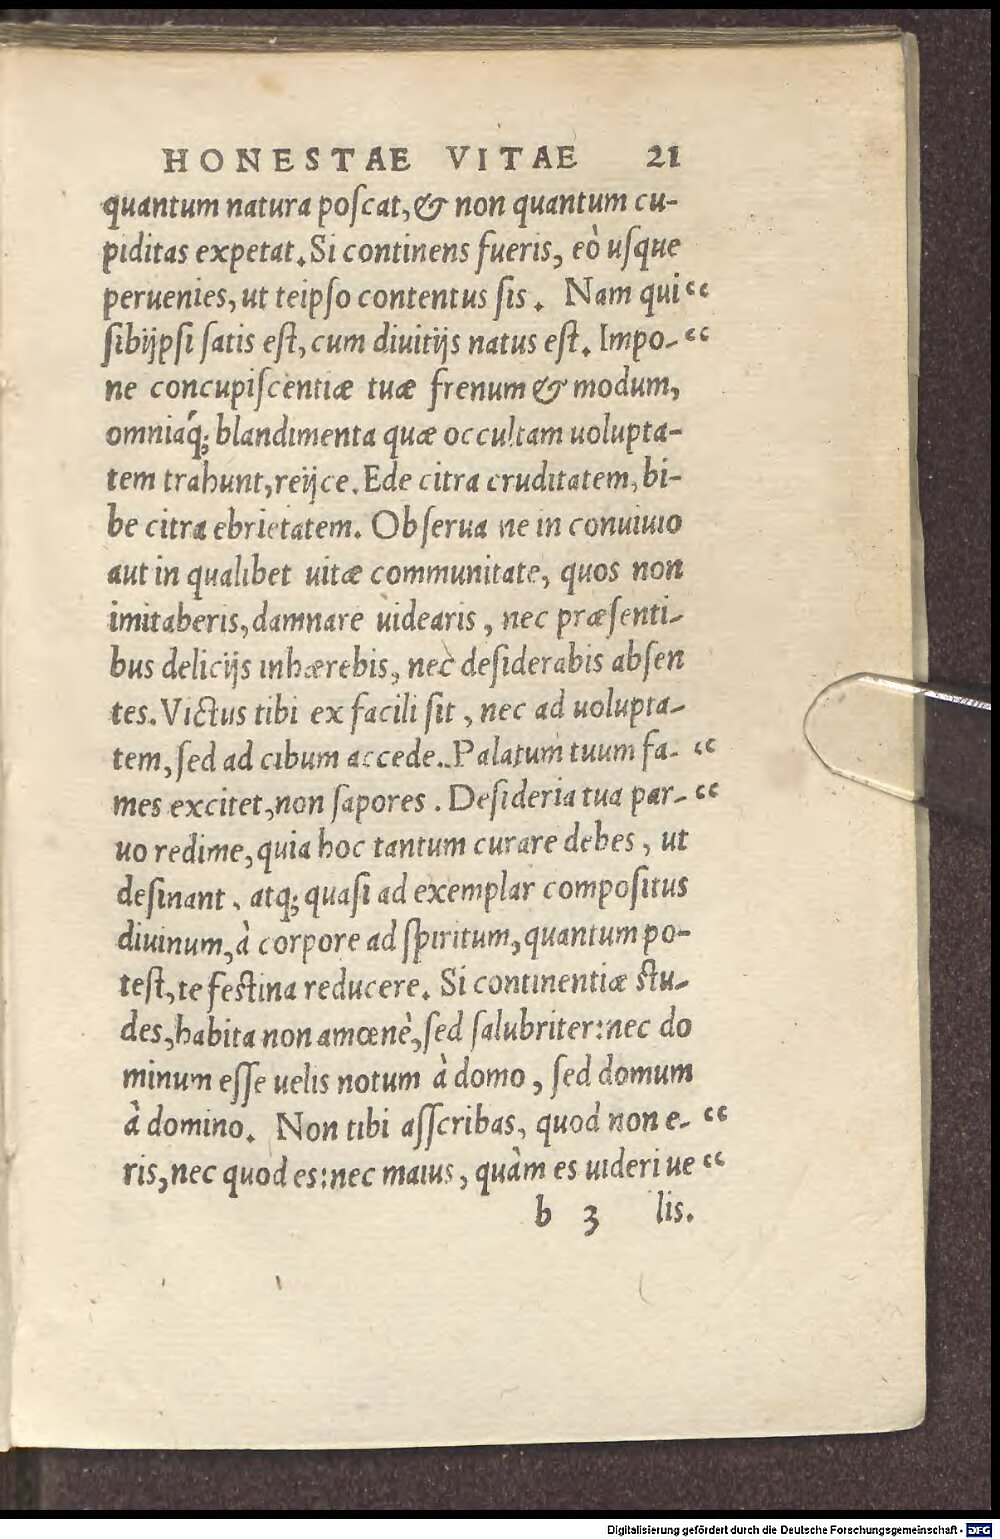 HONESTAE VITAE 21
quantum natura poſcat, & non quantum cu-
piditas expetat. Si continens fueris, eò uſque
peruenies, ut teipſo contentus ſis. Nam qui “
ſibijpſi ſatis eſt, cum diuitijs natus eſt. Impo- “
ne concupiſcentiæ tuæ frenum & modum,
omniáq; blandimenta quæ occultam uolupta-
tem trahunt, reijce. Ede citra cruditatem, bi-
be citra ebrietatem. Obſerua ne in conuiuio
aut in qualibet uitæ communitate, quos non
imitaberis, damnare uidearis, nec præſenti-
bus delicijs inhærebis, nec deſiderabis abſen
tes. Victus tibi ex facili ſit, nec ad uolupta-
tem, ſed ad cibum accede. Palatum tuum fa- “
mes excitet, non ſapores. Deſideria tua par- “
uo redime, quia hoc tantum curare debes, ut
deſinant, atq; quaſi ad exemplar compoſitus
diuinum, à corpore ad ſpiritum, quantum po-
teſt, te feſtina reducere. Si continentiæ ſtu-
des, habita non amœnè, ſed ſalubriter: nec do
minum eſſe uelis notum à domo, ſed domum
à domino. Non tibi aſſcribas, quod non e- “
ris, nec quod es: nec maius, quàm es uideri ue “
b 3 lis.
Digitalisierung gefördert durch die Deutsche Forschungsgemeinschaft - DFG